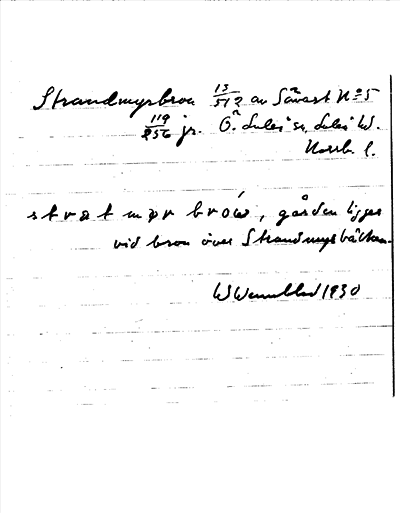 Strandmyrbron 13/512 av Sävast No 5
119/256 jr. Ö. Luleå sn, Luleå
Norrb. l.
gården ligger
vid bron över Strandmyrbäcken.
W Wennblad 1930